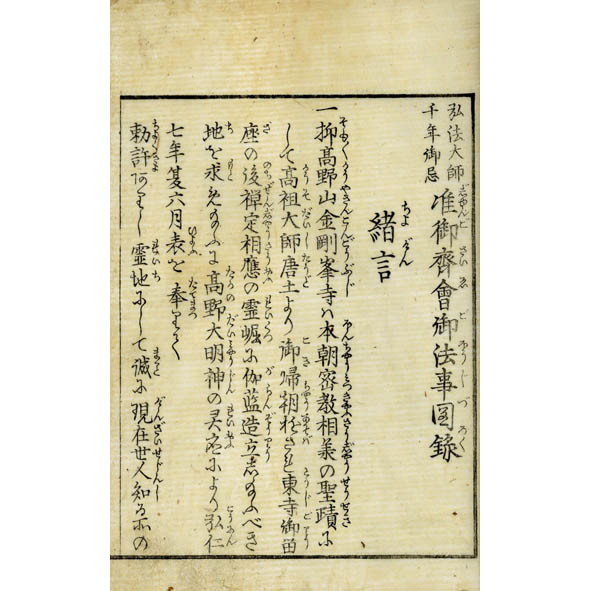 弘法大師
千年御忌
准御齊會御法事図録
緒言
一抑高野山金剛峯寺ハ本朝密教相義の聖蹟に
して高祖大師唐土より御帰朝まし〳〵東寺御留
座の後禅定相應の霊崛に伽藍造立志給ふべき
地を求め給ふに高野大明神の霊応により弘仁
七年夏六月表を奉りて
勅許ありし霊地にして誠に現在世人知る所の